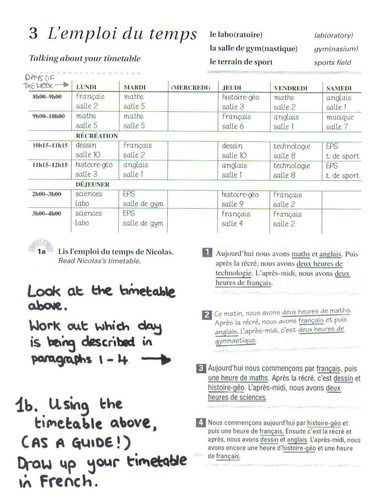 3 L'emploi du temps
Talking about your timetable
le labo(ratoire) lab(oratory)
la salle de gym(nastique) gym(nasium)
le terrain de sport sports field
DAYS OF
THE WEEK → LUNDI MARDI (MERCREDI) JEUDI VENDREDI SAMEDI
8h00–9h00 français maths histoire-géo maths anglais
salle 2 salle 5 salle 3 salle 2 salle 1
9h00–10h00 maths maths français anglais musique
salle 5 salle 5 salle 6 salle 1 salle 7
RÉCRÉATION
10h15–11h15 dessin français dessin technologie EPS
salle 10 salle 2 salle 10 salle 8 t. de sport
11h15–12h15 histoire-géo anglais anglais technologie EPS
salle 3 salle 1 salle 1 salle 8 t. de sport
DÉJEUNER
2h00–3h00 sciences EPS histoire-géo français
labo salle de gym salle 9 salle 2
3h00–4h00 sciences EPS français français
labo salle de gym salle 4 salle 2
1a Lis l'emploi du temps de Nicolas.
Read Nicolas's timetable.
Look at the timetable
above.
Work out which day
is being described in
paragraphs 1-4 →
1b. Using the
timetable above,
(AS A GUIDE!)
Draw up your timetable
in French.
1 Aujourd'hui nous avons maths et anglais. Puis
après la récré, nous avons deux heures de
technologie. L'après-midi, nous avons deux
heures de français.
2 Ce matin, nous avons deux heures de maths.
Après la récré, nous avons français et puis
anglais. L'après-midi, c'est deux heures de
gymnastique.
3 Aujourd'hui nous commençons par français, puis
une heure de maths. Après la récré, c'est dessin et
histoire-géo. L'après-midi, nous avons deux
heures de sciences.
4 Nous commençons aujourd'hui par histoire-géo et
puis une heure de français. Ensuite c'est la récré et
après, nous avons dessin et anglais. L'après-midi, nous
avons encore une heure d'histoire-géo et une heure
de français.